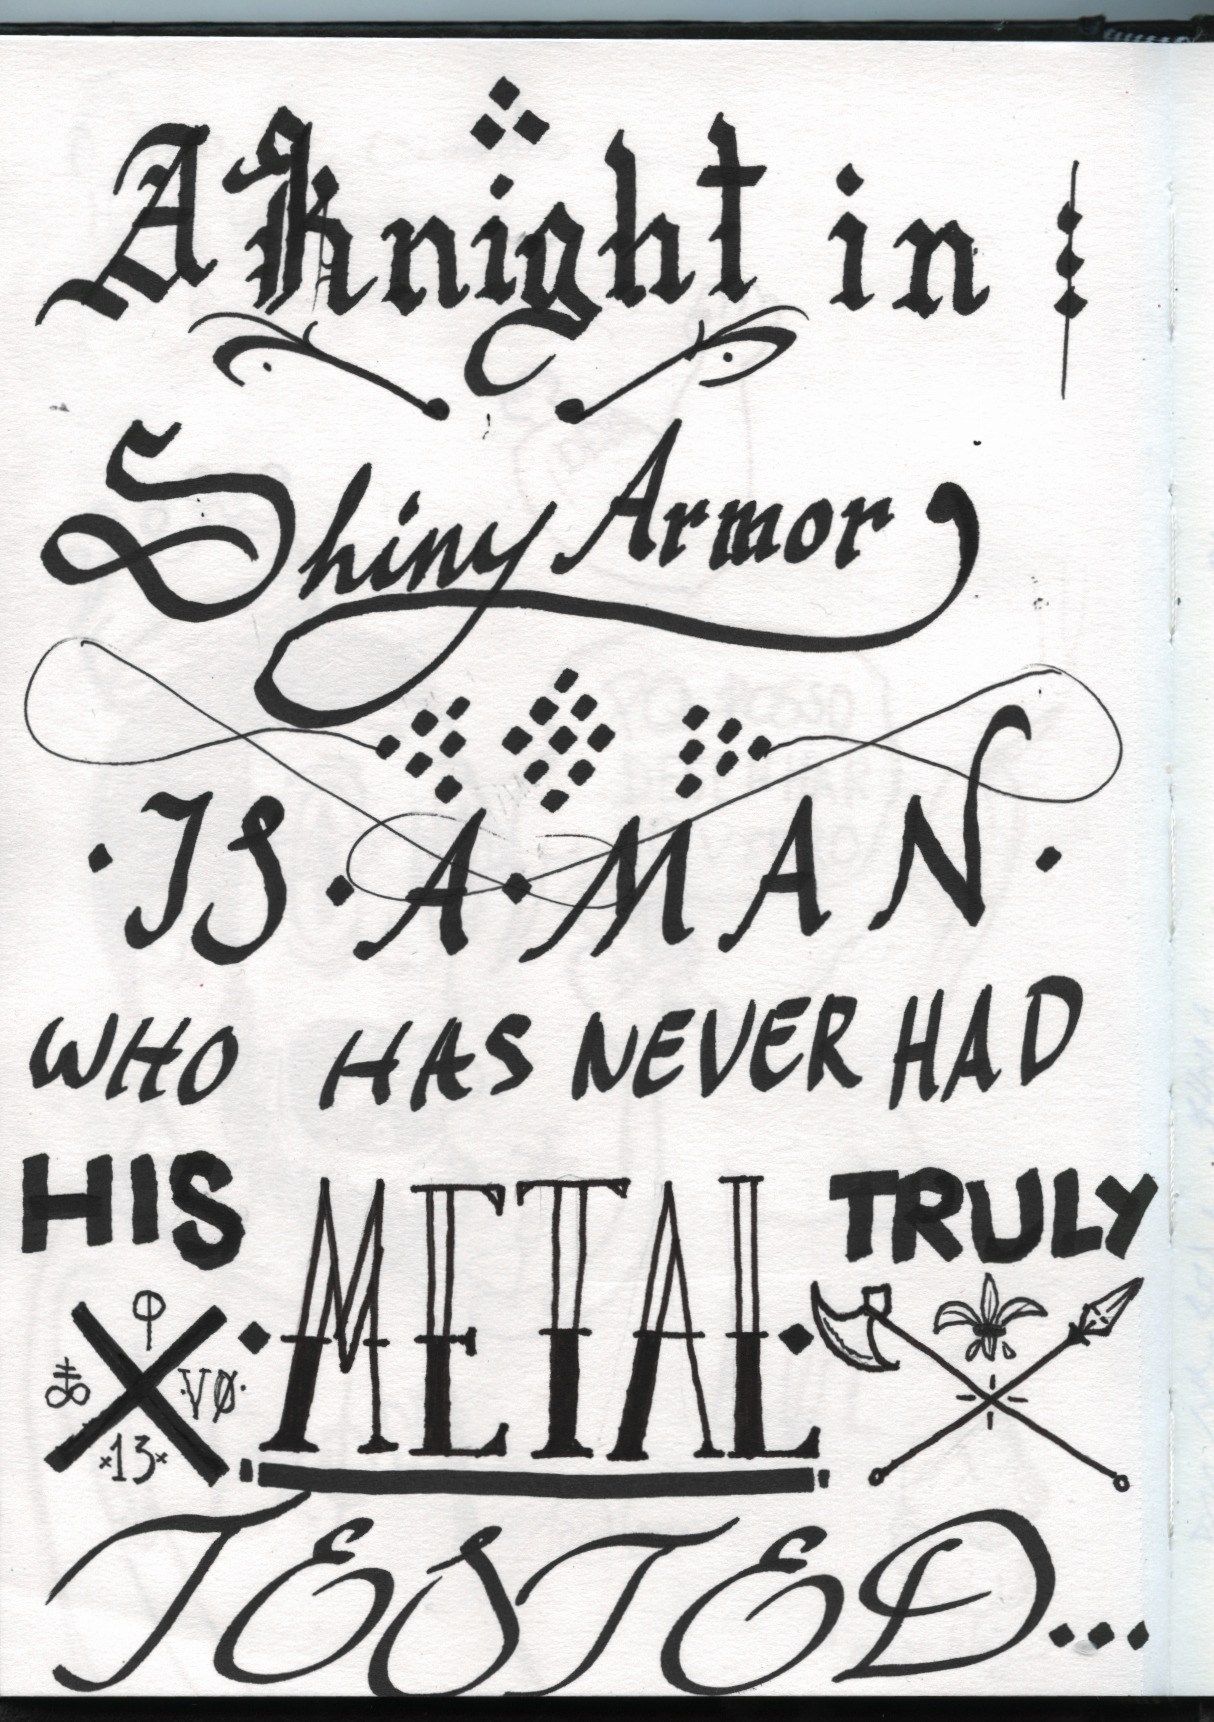 A Knight in
Shiny Armor
·IS·A·MAN·
WHO HAS NEVER HAD
HIS METAL TRULY
VØ
13
TESTED...